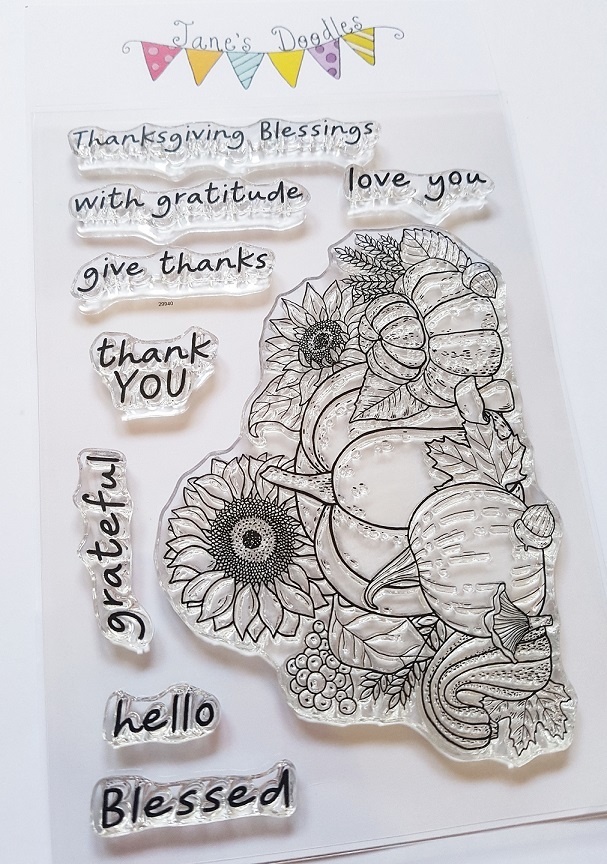 Jane's Doodles
Thanksgiving Blessings
love you
with gratitude
give thanks
thank
YOU
grateful
hello
Blessed